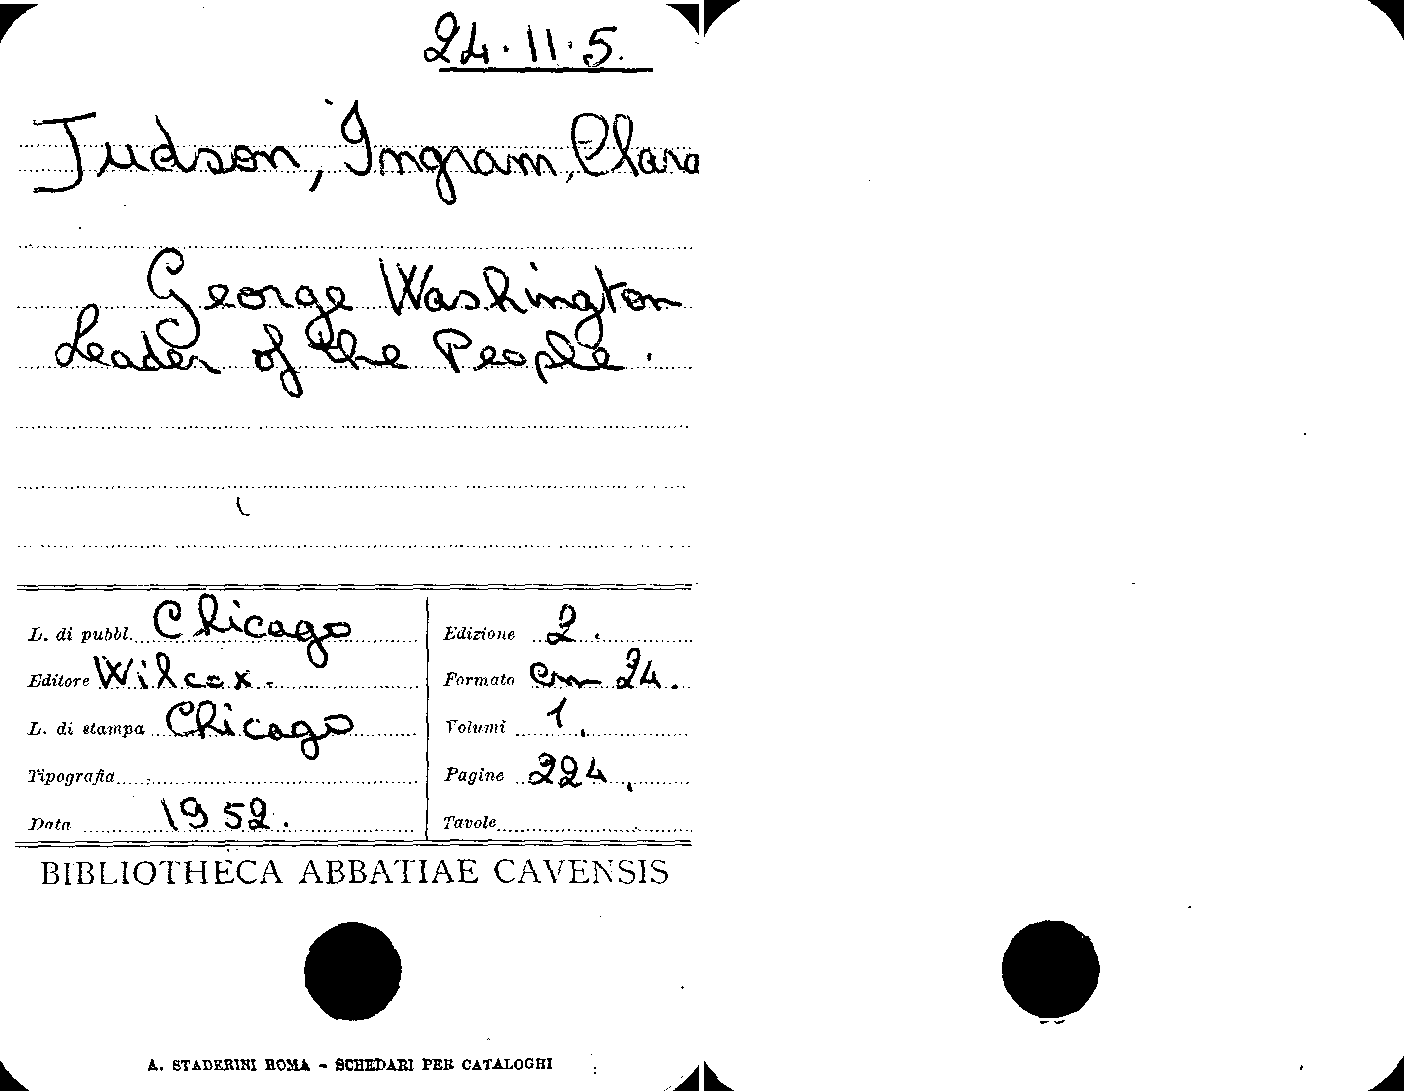 24.11.5.
Judson, Ingram, Clara
George Washington
Leader of the People.
L. di pubbl. Chicago
Edizione 2.
Editore Wilcox.
Formato cm 24.
L. di stampa Chicago
Volumi 1.
Tipografia
Pagine 224.
Data 1952.
Tavole
BIBLIOTHECA ABBATIAE CAVENSIS
A. STADERINI ROMA - SCHEDARI PER CATALOGHI